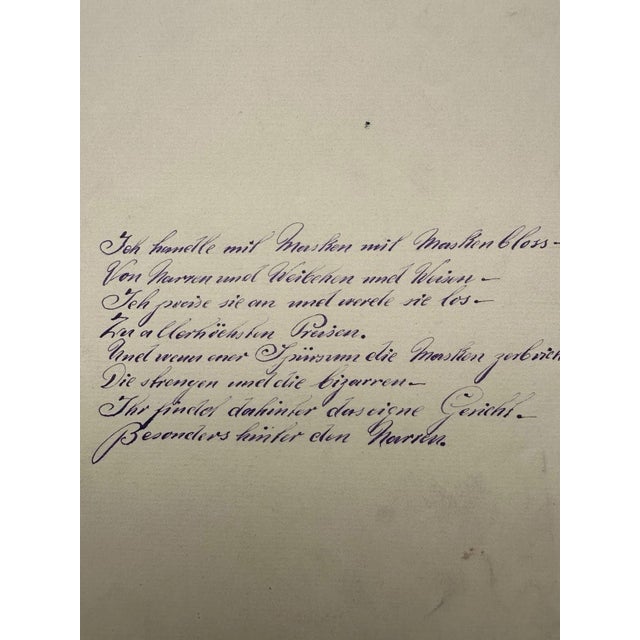 Ich handle mit Masken mit Masken bloss –
Von Narren und Weibchen und Weisen –
Ich preise sie an und werde sie los –
Zu allerhöchsten Preisen.
Und wenn euer Spürsinn die Masken zerbrich
Die strengen und die bizarren –
Ihr findet dahinter das eigne Gesicht –
Besonders hinter den Narren.